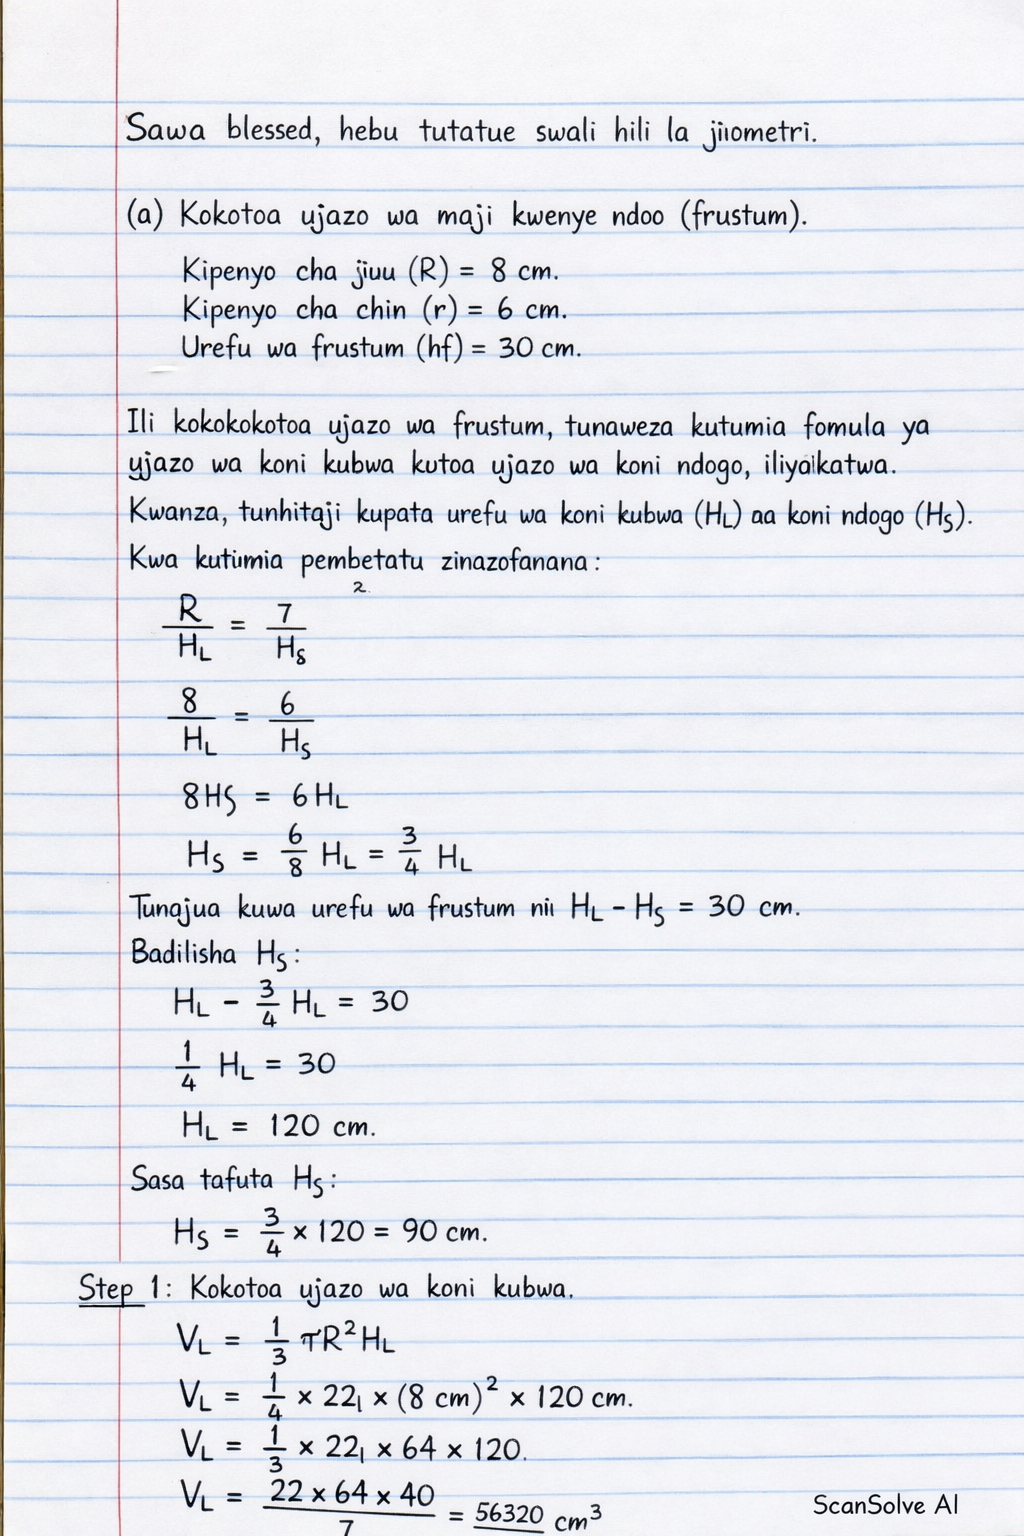 Sawa blessed, hebu tutatue swali hili la jiiometri.
(a) Kokotoa ujazo wa maji kwenye ndoo (frustum).
Kipenyo cha jiuu (R) = 8 cm.
Kipenyo cha chin (r) = 6 cm.
Urefu wa frustum (hf) = 30 cm.
Ili kokokokotoa ujazo wa frustum, tunaweza kutumia fomula ya
yjazo wa koni kubwa kutoa ujazo wa koni ndogo, iliyaikatwa.
Kwanza, tunhitaji kupata urefu wa koni kubwa (H_L) aa koni ndogo (H_S).
Kwa kutumia pembetatu zinazofanana :
2.
R/H_L = 7/H_S
8/H_L = 6/H_S
8HS = 6H_L
H_S = 6/8 H_L = 3/4 H_L
Tunajua kuwa urefu wa frustum nii H_L - H_S = 30 cm.
Badilisha H_S:
H_L - 3/4 H_L = 30
1/4 H_L = 30
H_L = 120 cm.
Sasa tafuta H_S:
H_S = 3/4 × 120 = 90 cm.
Step 1: Kokotoa ujazo wa koni kubwa.
V_L = 1/3 πR² H_L
V_L = 1/4 × 22₁ × (8 cm)² × 120 cm.
V_L = 1/3 × 22₁ × 64 × 120.
V_L = 22 × 64 × 40/7 = 56320 cm³
ScanSolve AI